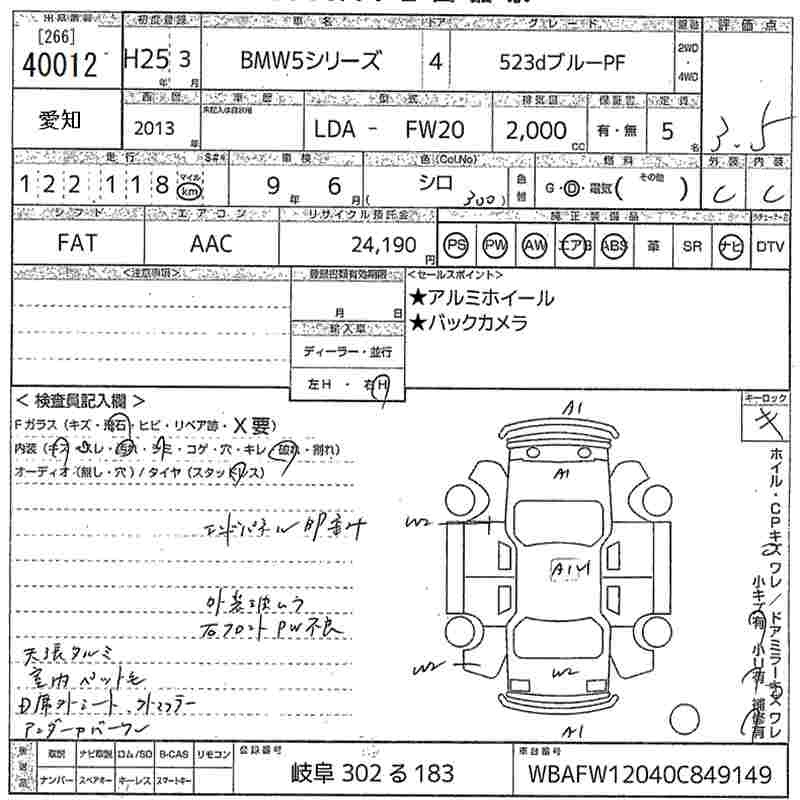 出品番号 初度登録 車名 ドア グレード 駆動 評価点
[266]
40012 H25 3 BMW5シリーズ 4 523dブルーPF 2WD・4WD 3.5
年 月
愛知 西暦 車歴 型式 排気量 保証書 定員
未記入は自家用
2013年 LDA - FW20 2,000cc 有・無 5名 外装 内装
C C
走行 車検 色(Col.No) 燃料
122118 マイル km 9年 6月 シロ (300) 色替 G・D・電気( その他 )
シフト エアコン リサイクル預託金 純正装備品
FAT AAC 24,190円 PS PW AW エアB ABS 革 SR ナビ DTV
<注意事項> 登録書類有効期限 <セールスポイント>
月 日
★アルミホイール
★バックカメラ
輸入車
ディーラー・並行
左H・右H
<検査員記入欄>
Fガラス(キズ・飛石・ヒビ・リペア跡・X要)
内装(キズ・スレ・汚れ・シミ・コゲ・穴・キレ・割れ)
オーディオ(無し・穴)/タイヤ(スタッドレス)
キーロック
キ
ホイル・CPキズ ワレ/ドアミラーキズ ワレ
小キズ有 小リ有 補修有
A1
A1
W2
A1
W2
W2
A1
エンドパネル
右フロントPW不良
天張タルミ
室内ペット毛
D席
アンダーカバー
後送品 取説 ナビ取説 ロム/SD B-CAS リモコン 登録番号 車台番号
ナンバー スペアキー キーレス スマートキー
岐阜 302 る 183 WBAFW12040C849149